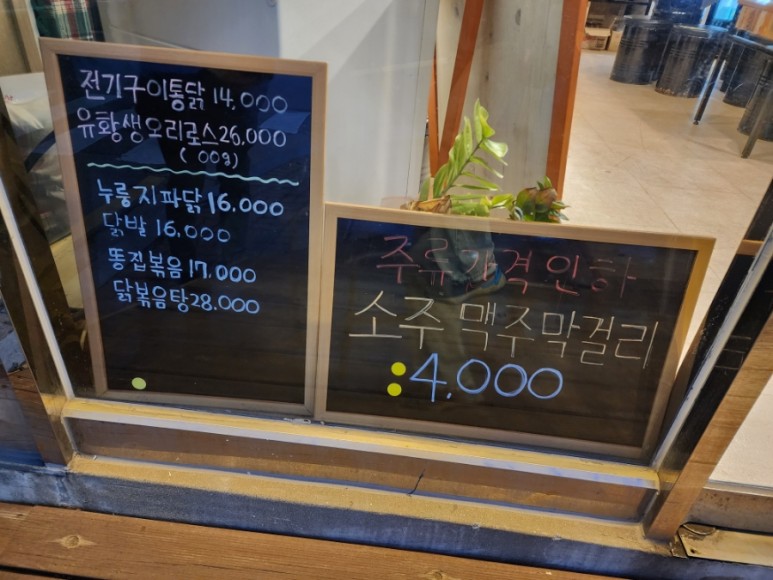 전기구이통닭 14,000
유황생오리로스 26,000
( 00g)
누룽지파닭 16.000
닭발 16,000
똥집볶음 17,000
닭볶음탕 28.000
주류가격인하
소주 맥주 막걸리
:4,000